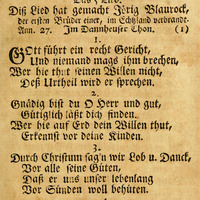 Das 5. Lied.
Diß Lied hat gemacht Jörig Blaurock,
der ersten Brüder einer, im Etschland verbrandt.
Ann. 27. Im Dannheuser Thon. (1)
1.
GOtt führt ein recht Gericht,
Und niemand mags ihm brechen,
Wer hie thut seinen Willen nicht,
Deß Urtheil wird er sprechen.
2.
Gnädig bist du O HErr und gut,
Gütiglich läßt dich finden.
Wer hie auf Erd dein Willen thut,
Erkennst vor deine Kinden.
3.
Durch Christum sag'n wir Lob u. Danck,
Vor alle seine Güten,
Daß er uns unser lebenlang
Vor Sünden woll behüten.